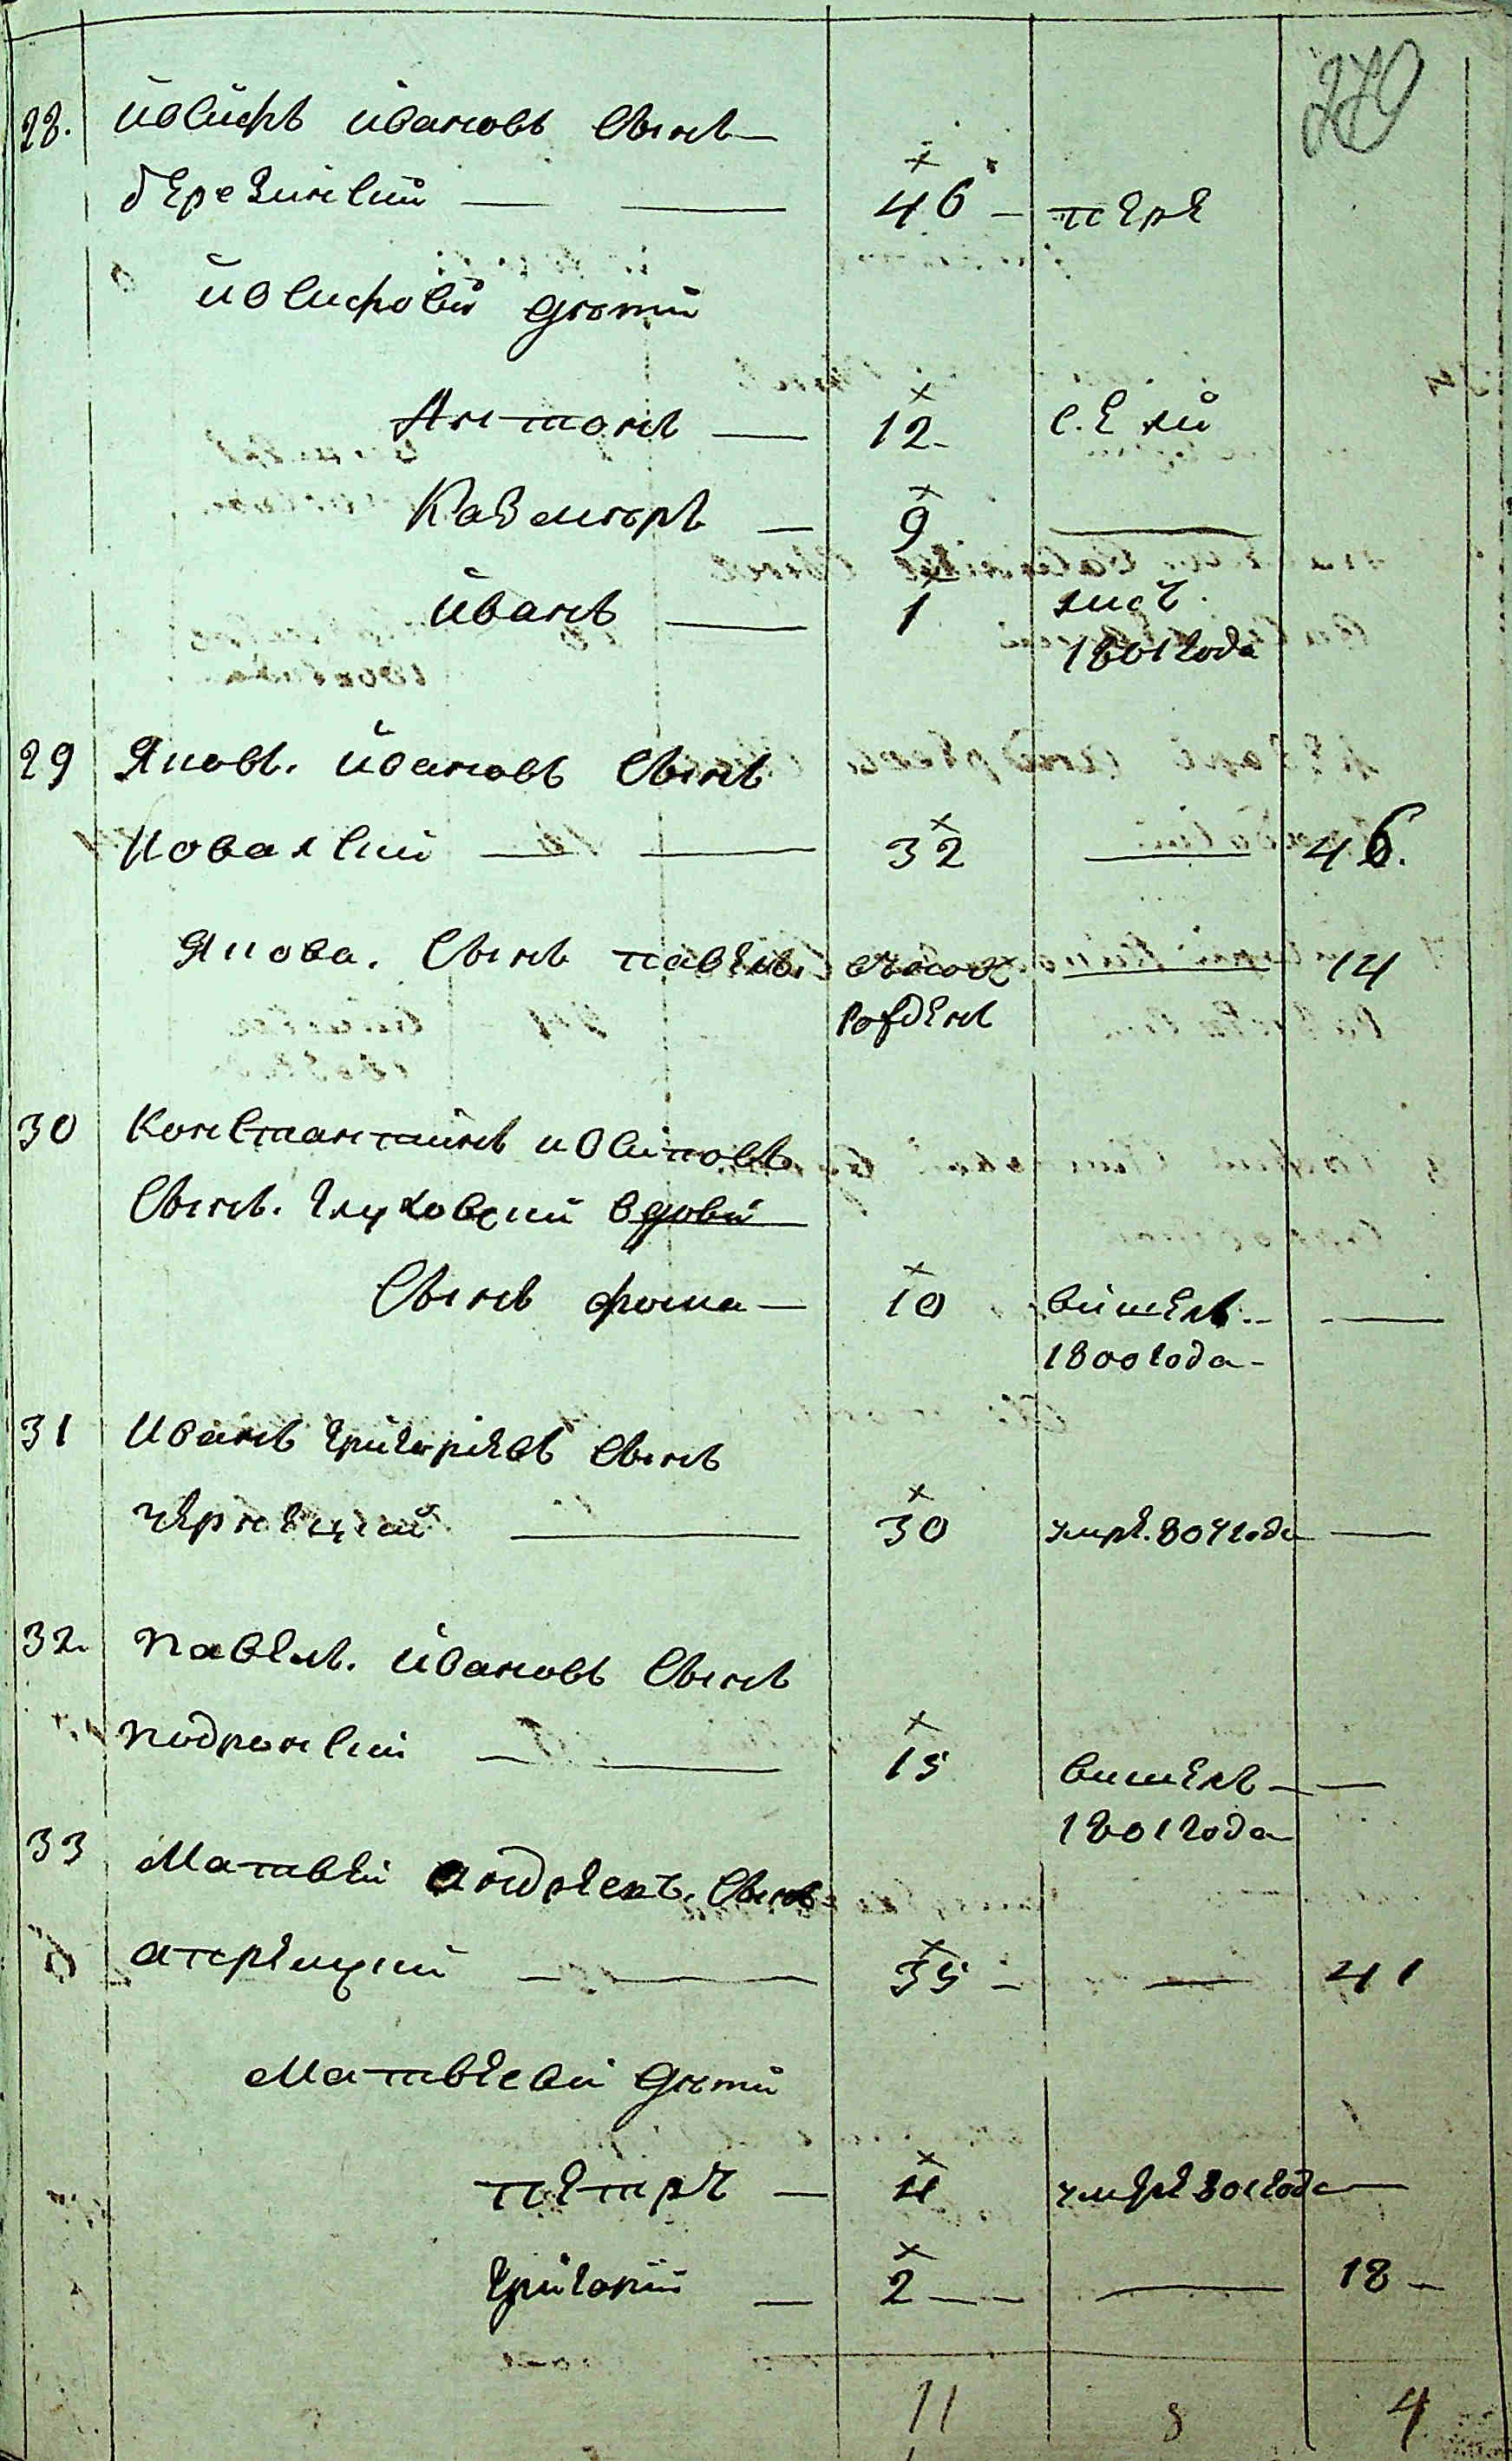 270
28. Иосифъ Ивановъ Сынъ
березинскій 46 пере
Иосифовы дѣти
Антонъ 12 селй
Казѣміръ 9
Иванъ 1
1801 года
29 Яковъ Ивановъ Сынъ
Ковалскій 32 46.
Якова Сынъ Павелъ 14
рожденъ
30 Константинъ
Сынъ Глуховскій вдовы
Сынъ Фома 10 вишелъ
1800 года
31 Иванъ Григорiевъ Сынъ
чернецкій 30 умре 804 года
32. Павелъ Ивановъ Сынъ
Подронскій 15 вишелъ
1801 года
33 Матвѣй Андреевъ Сынъ
35 41
Матвѣеви дѣти
Петръ 4 умре 801 года
Григорій 2 18
11 8 4